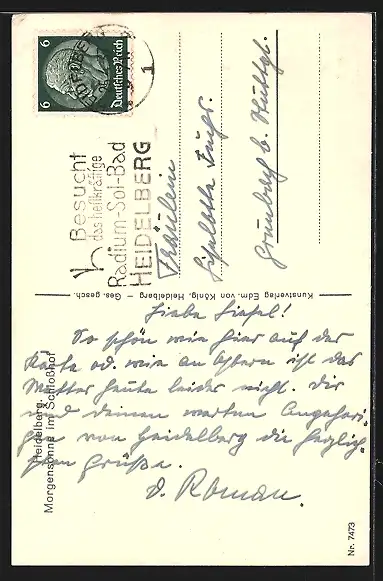 6 6
Deutsches Reich
HEIDELBERG
1
Besucht
das heilkräftige
Radium-Sol-Bad
HEIDELBERG
Fräulein
Liselotte
b.
Kunstverlag Edm. von König, Heidelberg — Ges. gesch.
Liebe Liesel!
So schön wie hier auf der
Karte od. wie an Ostern ist das
Wetter heute leider nicht. Dir
und deinen werten Angehöri-
gen von Heidelberg die herzlich-
sten Grüße.
d. Roman.
Heidelberg.
Morgensonne im Schloßhof
Nr. 7473